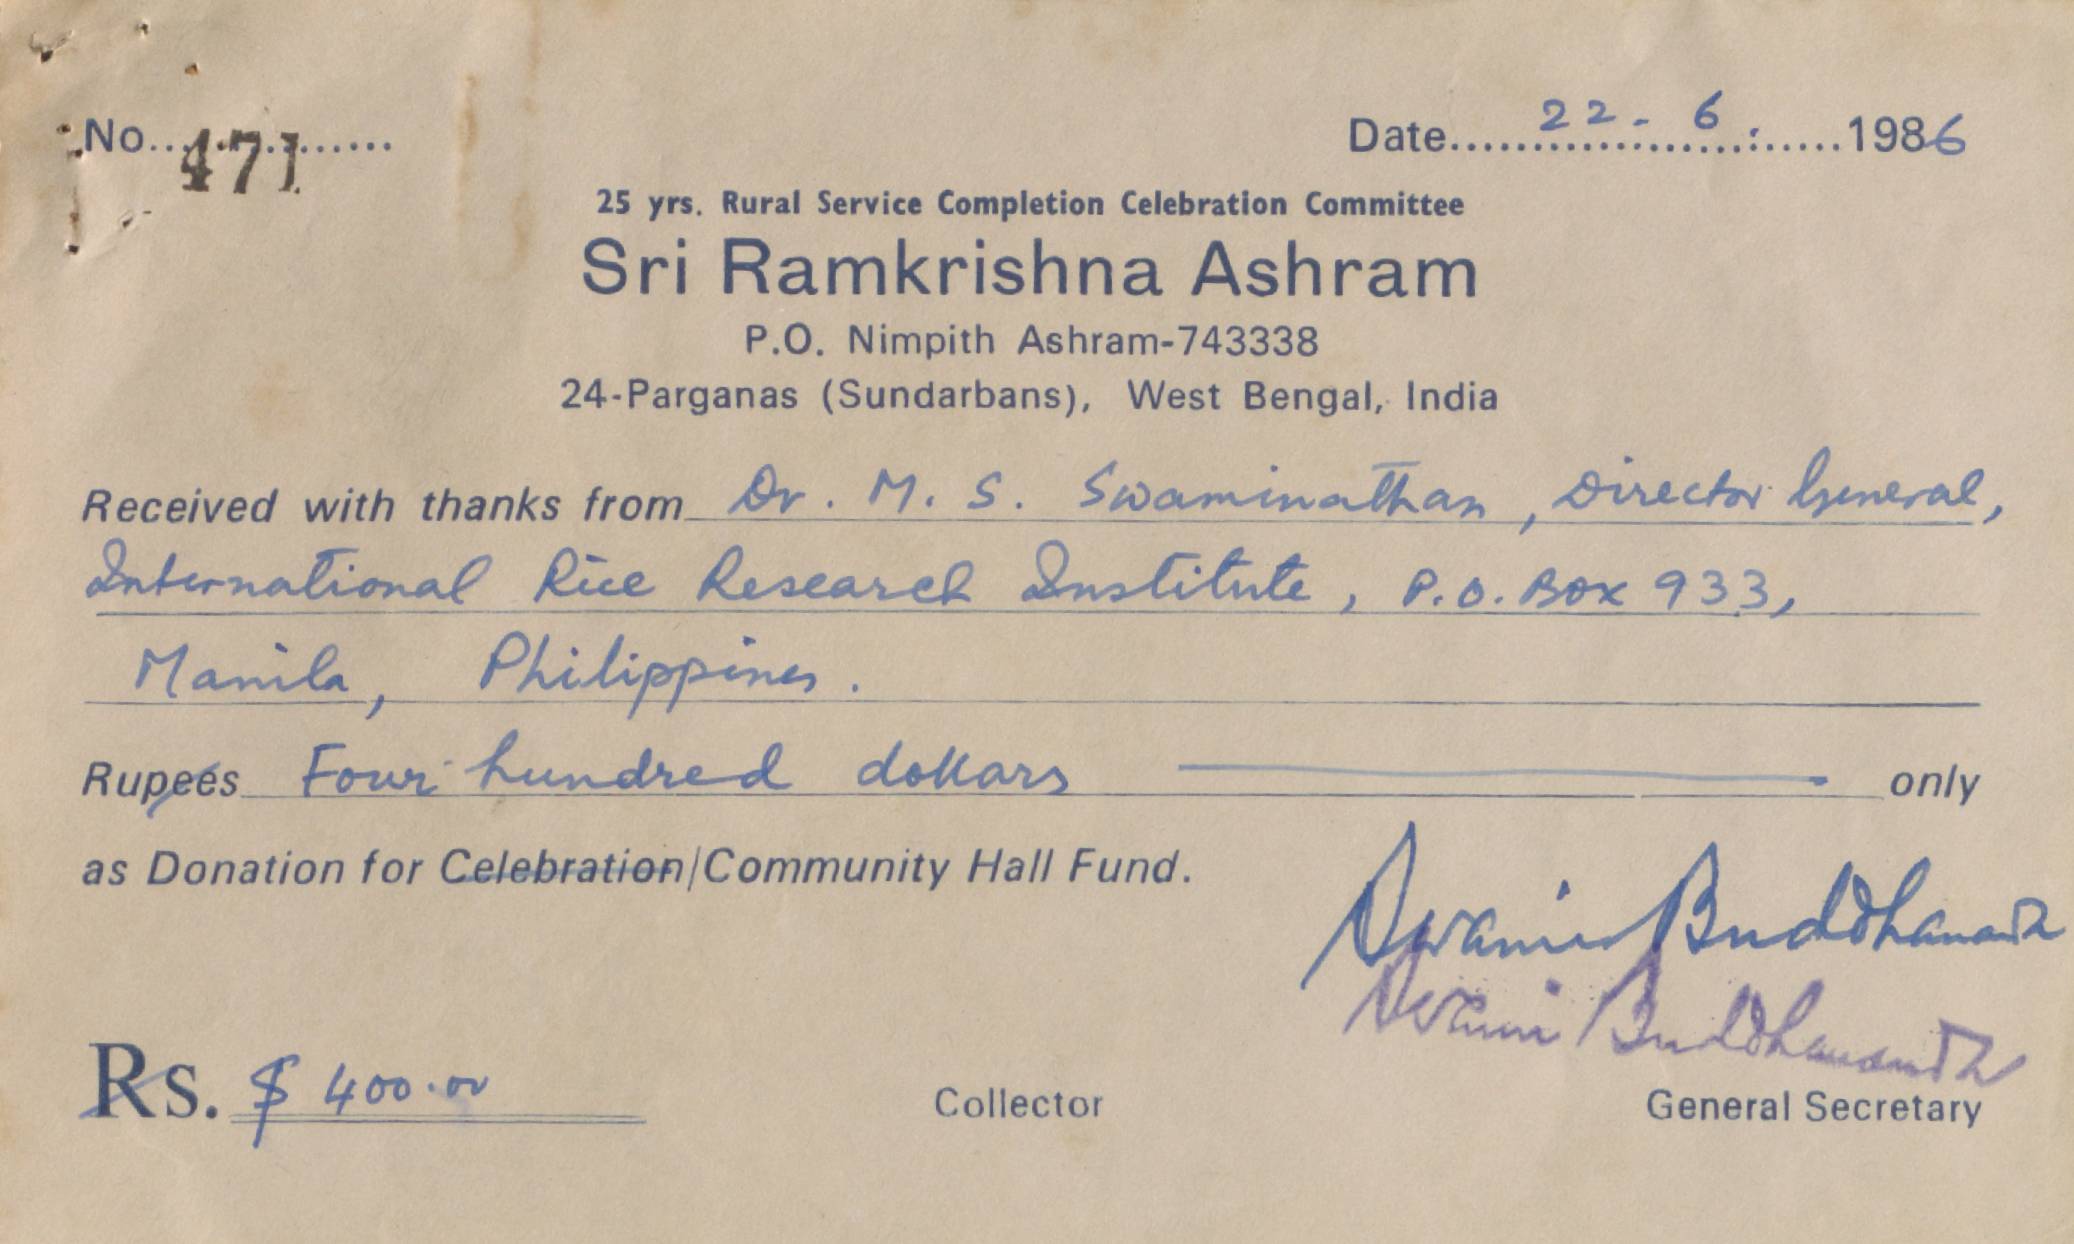 No. 471
Date 22-6. 1986
25 yrs. Rural Service Completion Celebration Committee
Sri Ramkrishna Ashram
P.O. Nimpith Ashram-743338
24-Parganas (Sundarbans), West Bengal, India
Received with thanks from Dr. M. S. Swaminathan, Director General,
International Rice Research Institute, P.O. Box 933,
Manila, Philippines.
Rupees Four hundred dollars only
as Donation for Celebration/Community Hall Fund.
Swami Buddhananda
Swami Buddhananda
Rs. $ 400.00
Collector
General Secretary